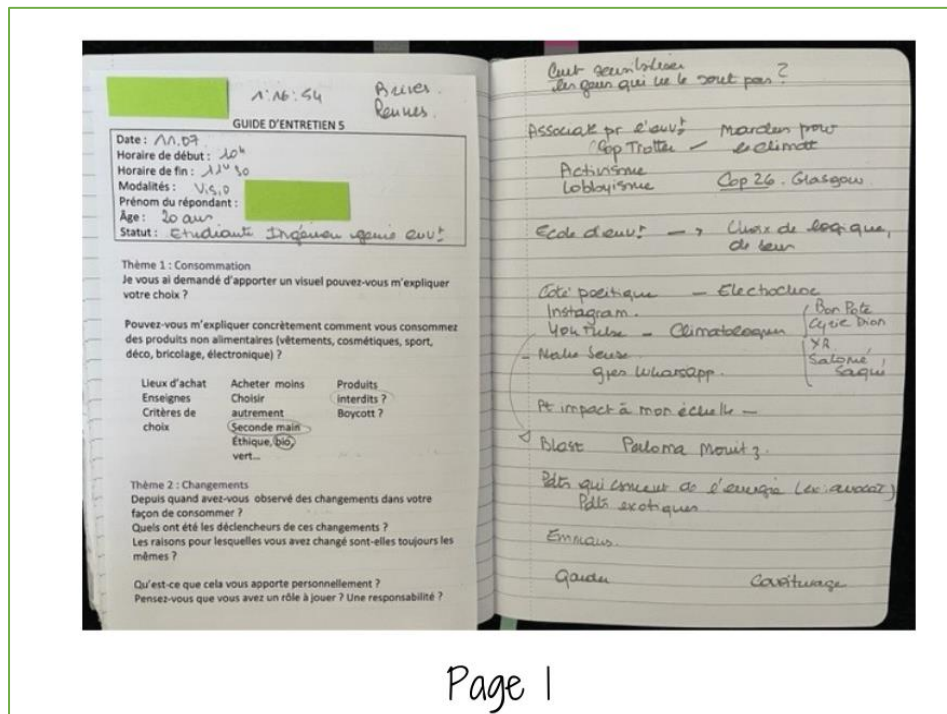 1:16:54
Rennes.
GUIDE D'ENTRETIEN 5
Date : 11.07
Horaire de début : 10h
Horaire de fin : 11h30
Modalités : Visio
Prénom du répondant :
Âge : 20 ans
Statut : Etudiante Ingénieur génie envt
Thème 1 : Consommation
Je vous ai demandé d'apporter un visuel pouvez-vous m'expliquer
votre choix ?
Pouvez-vous m'expliquer concrètement comment vous consommez
des produits non alimentaires (vêtements, cosmétiques, sport,
déco, bricolage, électronique) ?
Lieux d'achat Acheter moins Produits
Enseignes Choisir interdits ?
Critères de autrement Boycott ?
choix Seconde main
Éthique, bio,
vert...
Thème 2 : Changements
Depuis quand avez-vous observé des changements dans votre
façon de consommer ?
Quels ont été les déclencheurs de ces changements ?
Les raisons pour lesquelles vous avez changé sont-elles toujours les
mêmes ?
Qu'est-ce que cela vous apporte personnellement ?
Pensez-vous que vous avez un rôle à jouer ? Une responsabilité ?
sensibiliser
les gens qui ne le sont pas ?
pr l'envt Marches pour
Cop Trotter – le climat
Activisme
Lobbyisme Cop 26. Glasgow
Ecole d'envt → Choix de logique,
de sens
Coté politique – Electochoc
Instagram. Bon Pote
YouTube – Climatologues Cyril Dion
XR
– Salomé
Saqué
Whatsapp.
Pt impact à mon échelle –
Blast Paloma Moritz.
Pdts qui consomt de l'énergie (ex: avocat)
Pdts exotiques
Emmaus.
Covoiturage
Page 1